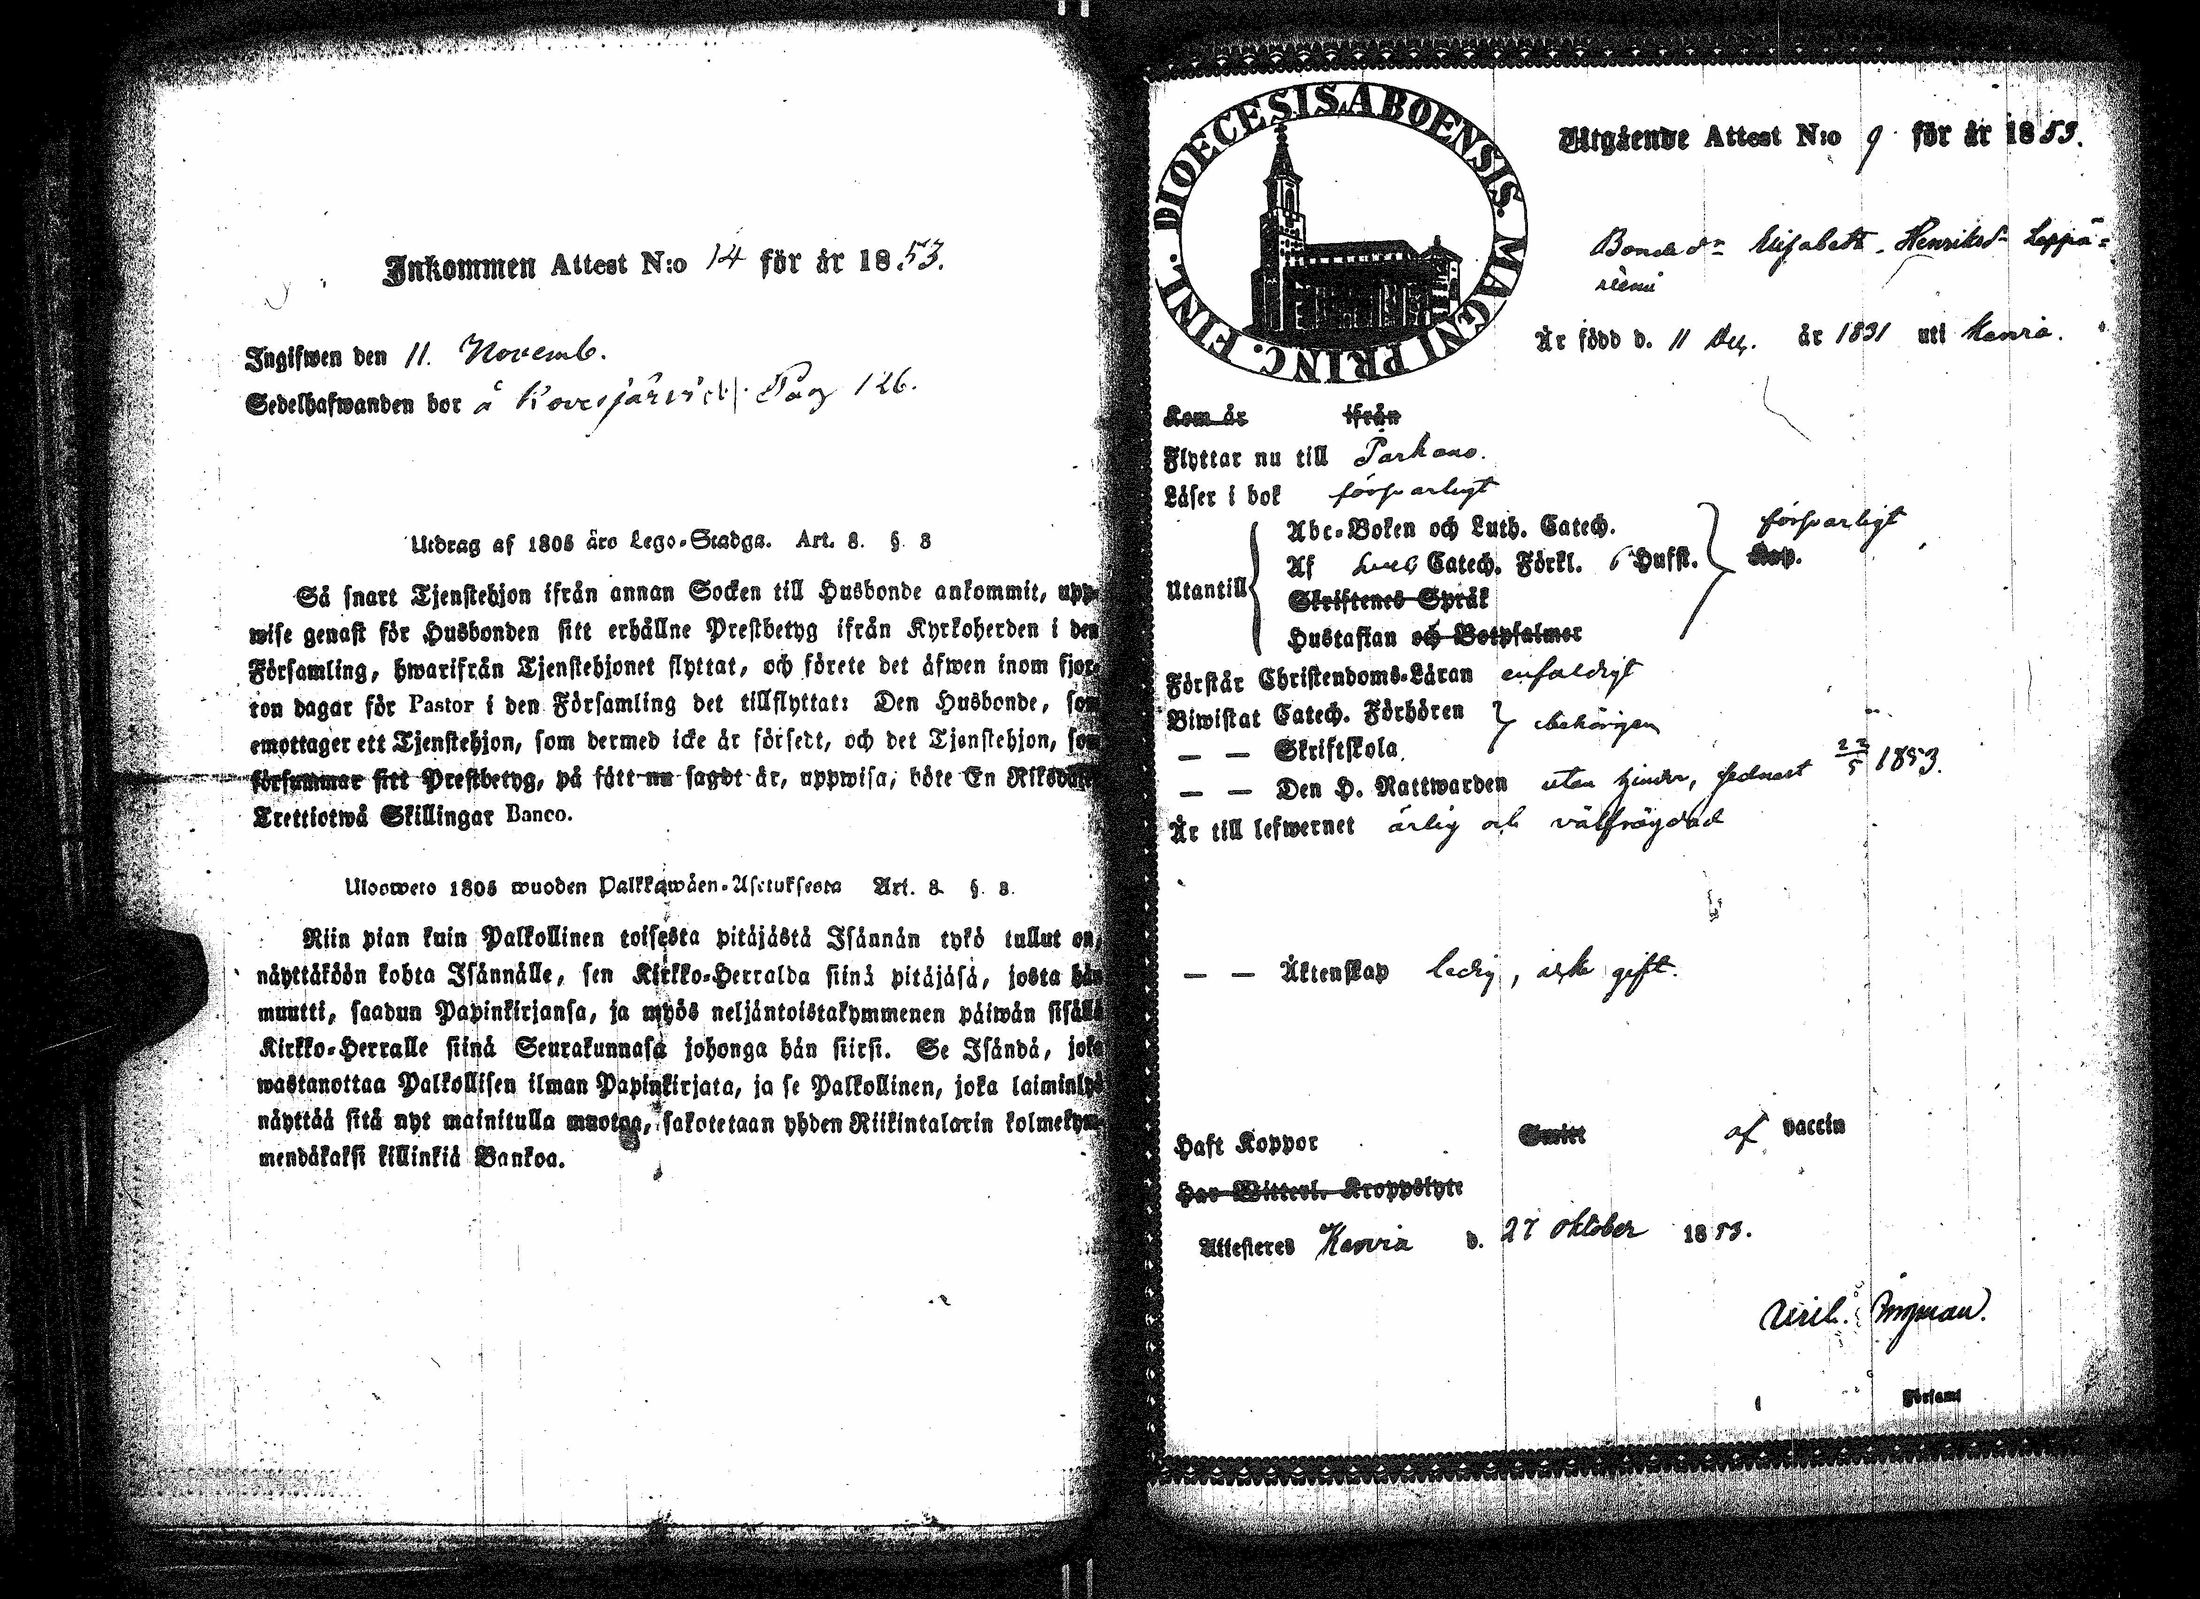 Inkommen Attest N:o 14 för år 1853.
Ingifwen den 11. Novemb.
Sedelhafwanden bor å Kovesjärvi Pag 126.
Utdrag af 1805 års Lego-Stadga. Art. 8. §. 8
Så snart Tjenstehjon ifrån annan Socken till Husbonde ankommit, upp-
wise genast för Husbonden sitt erhållne Prestbetyg ifrån Kyrkoherden i den
Församling, hwarifrån Tjenstehjonet flyttat, och förete det äfwen inom fjor-
ton dagar för Pastor i den Församling det tillflyttat: Den Husbonde, som
emottager ett Tjenstehjon, som dermed icke är försedt, och det Tjenstehjon, som
försummar sitt Prestbetyg, på sätt nu sagdt är, uppwisa, böte En Riksdaler
Trettiotwå Skillingar Banco.
Ulosweto 1805 wuoden Palkkawäen-Asetuksesta Art. 8. §. 8.
Niin pian kuin Palkollinen toisesta pitäjästä Isännän tykö tullut on,
näyttäköön kohta Isännälle, sen Kirkko-Herralda siinä pitäjäsä, josta hän
muutti, saadun Papinkirjansa, ja myös neljäntoistakymmenen päiwän sisällä
Kirkko-Herralle siinä Seurakunnasa johonga hän siirsi. Se Isändä, joka
wastanottaa Palkollisen ilman Papinkirjata, ja se Palkollinen, joka laiminlyö
näyttää sitä nyt mainitulla muotoa, sakotetaan yhden Riikintalarin kolmekym-
mendäkaksi killinkiä Bankoa.
DIOECESIS ABOENSIS. MAGNI PRINC. FINL.
Utgående Attest N:o 9 för år 1853.
Bonde dr Elisabeth Henriksdr Leppä-
niemi
Är född d. 11 Dec. år 1831 uti Karvia.
Kom år ifrån
Flyttar nu till Parkano.
Läser i bok försvarligt
Utantill
Abc-Boken och Luth. Catech. försvarligt
Af Catech. Förkl. 6 Hufst. Kap.
Skriftenes Språk
Hustaflan och Botpsalmer
Förstår Christendoms-Läran enfaldigt
Biwistat Catech. Förhören behörigen
— — Skriftskola
— — Den H. Nattwarden utan hinder, sednast 22/5 1853.
Är till lefwernet ärlig och välfrägdad
— — Äktenskap ledig, icke gift.
Haft Koppor Smitt af vaccin
Har Witterl. Kroppslyte
Attesteras Karvia d. 27 Oktober 1853.
Ingman.
Församl